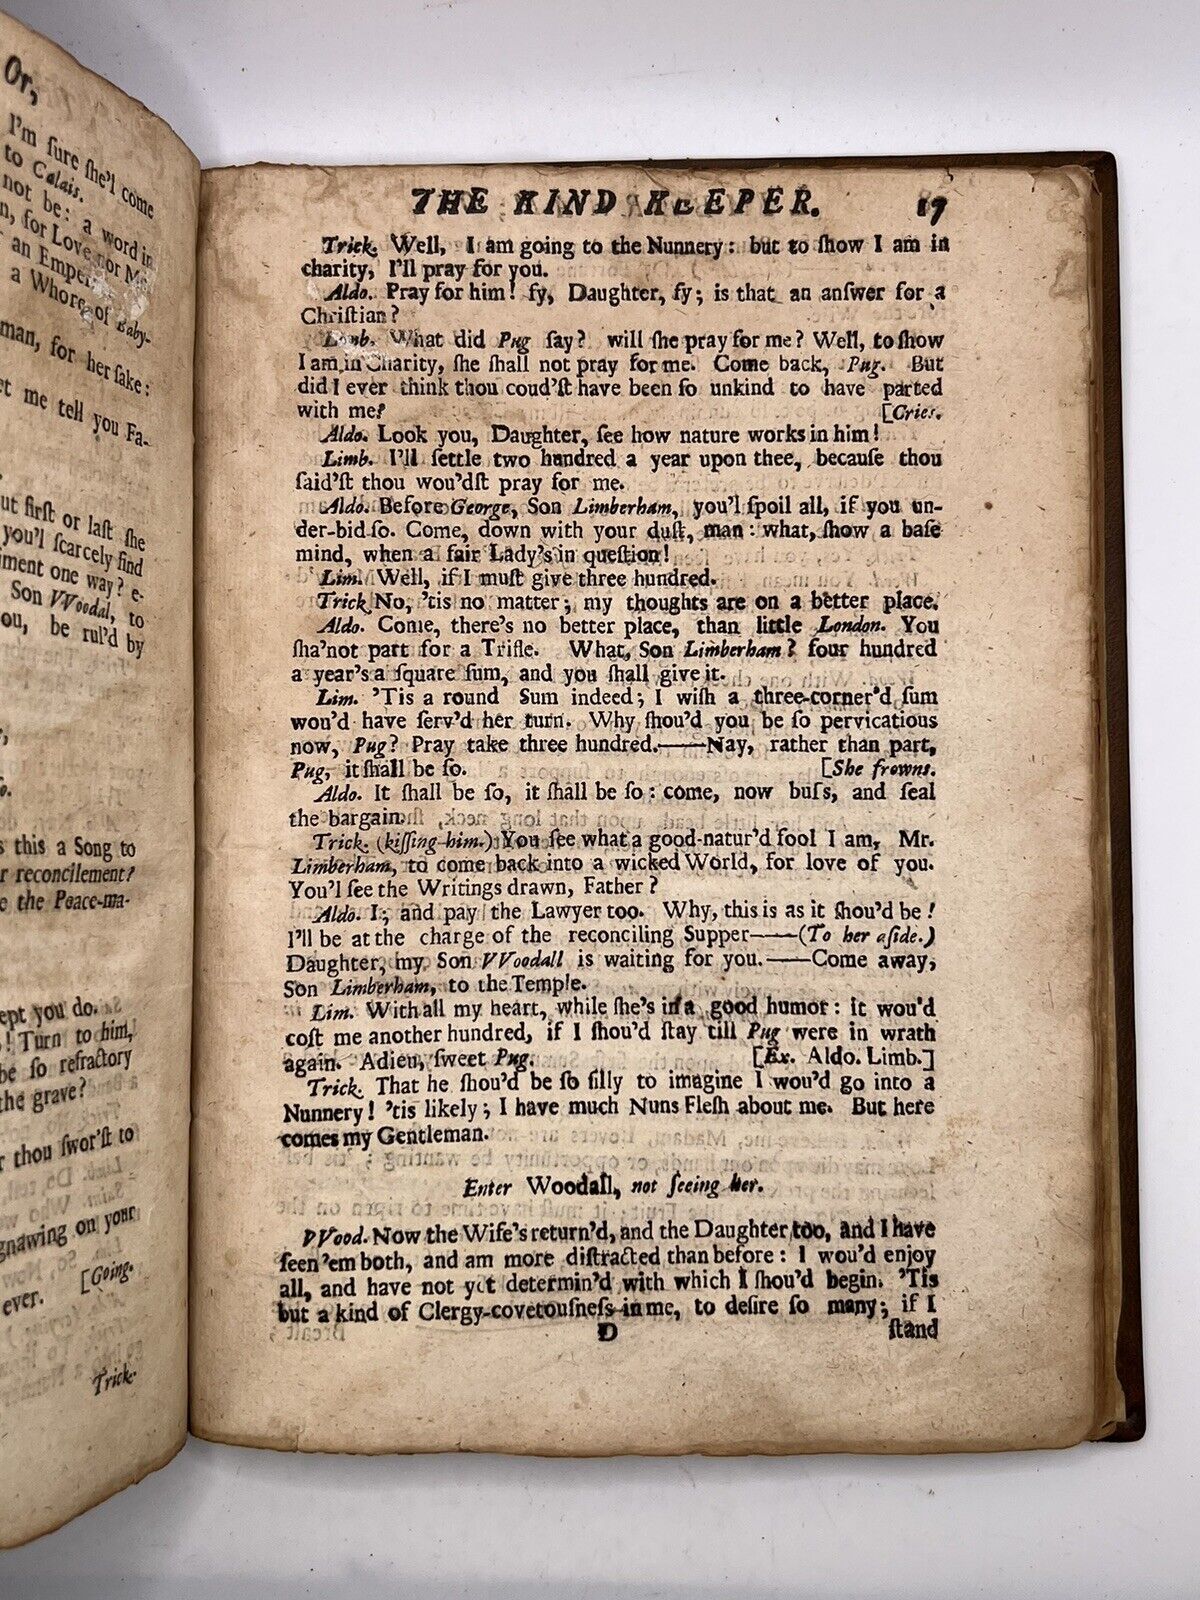 Or,
I'm ſure ſhe'l come
to Calais.
not be: a word in
n, for Love nor Mo
an Emper
a Whore of Baby-
man, for her ſake:
et me tell you Fa-
ut firſt or laſt ſhe
you'l ſcarcely find
iment one way? e-
Son VVoodal, to
ou, be rul'd by
s this a Song to
r reconcilement?
e the Peace-ma-
ept you do.
! Turn to him,
be ſo refractory
the grave?
r thou ſwor'ſt to
gnawing on your
[Going.
ever.
Trick.
THE KIND KEEPER. 17
Trick. Well, I am going to the Nunnery: but to ſhow I am in
charity, I'll pray for you.
Aldo. Pray for him! fy, Daughter, fy; is that an anſwer for a
Chriſtian?
Limb. What did Pug ſay? will ſhe pray for me? Well, to ſhow
I am in Charity, ſhe ſhall not pray for me. Come back, Pug. But
did I ever think thou coud'ſt have been ſo unkind to have parted
with me? [Cries.
Aldo. Look you, Daughter, ſee how nature works in him!
Limb. I'll ſettle two hundred a year upon thee, becauſe thou
ſaid'ſt thou wou'dſt pray for me.
Aldo. Before George, Son Limberham, you'l ſpoil all, if you un-
der-bid ſo. Come, down with your duſt, man: what, ſhow a baſe
mind, when a fair Lady's in queſtion!
Lim. Well, if I muſt give three hundred.
Trick. No, 'tis no matter; my thoughts are on a better place.
Aldo. Come, there's no better place, than little London. You
ſha'not part for a Trifle. What, Son Limberham? four hundred
a year's a ſquare ſum, and you ſhall give it.
Lim. 'Tis a round Sum indeed; I wiſh a three-corner'd ſum
wou'd have ſerv'd her turn. Why ſhou'd you be ſo pervicatious
now, Pug? Pray take three hundred.——Nay, rather than part,
Pug, it ſhall be ſo. [She frowns.
Aldo. It ſhall be ſo, it ſhall be ſo: come, now buſs, and ſeal
the bargain.
Trick. (kiſſing him.) You ſee what a good-natur'd fool I am, Mr.
Limberham, to come back into a wicked World, for love of you.
You'l ſee the Writings drawn, Father?
Aldo. I; and pay the Lawyer too. Why, this is as it ſhou'd be!
I'll be at the charge of the reconciling Supper——(To her aſide.)
Daughter, my Son VVoodall is waiting for you.——Come away,
Son Limberham, to the Temple.
Lim. With all my heart, while ſhe's in a good humor: it wou'd
coſt me another hundred, if I ſhou'd ſtay till Pug were in wrath
again. Adieu, ſweet Pug. [Ex. Aldo. Limb.]
Trick. That he ſhou'd be ſo ſilly to imagine I wou'd go into a
Nunnery! 'tis likely; I have much Nuns Fleſh about me. But here
comes my Gentleman.
Enter Woodall, not ſeeing her.
VVood. Now the Wife's return'd, and the Daughter too, and I have
ſeen 'em both, and am more diſtracted than before: I wou'd enjoy
all, and have not yet determin'd with which I ſhou'd begin. 'Tis
but a kind of Clergy-covetouſneſs in me, to deſire ſo many; if I
D ſtand